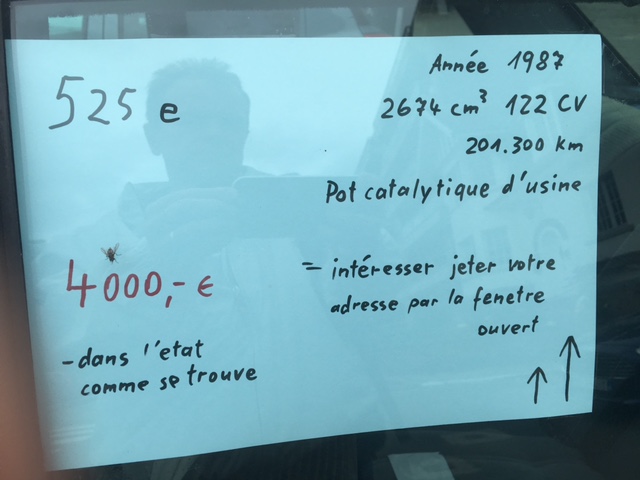 525 e
Année 1987
2674 cm³ 122 CV
201.300 km
Pot catalytique d'usine
4000,- €
- dans l'etat
comme se trouve
= intéresser jeter votre
adresse par la fenetre
ouvert